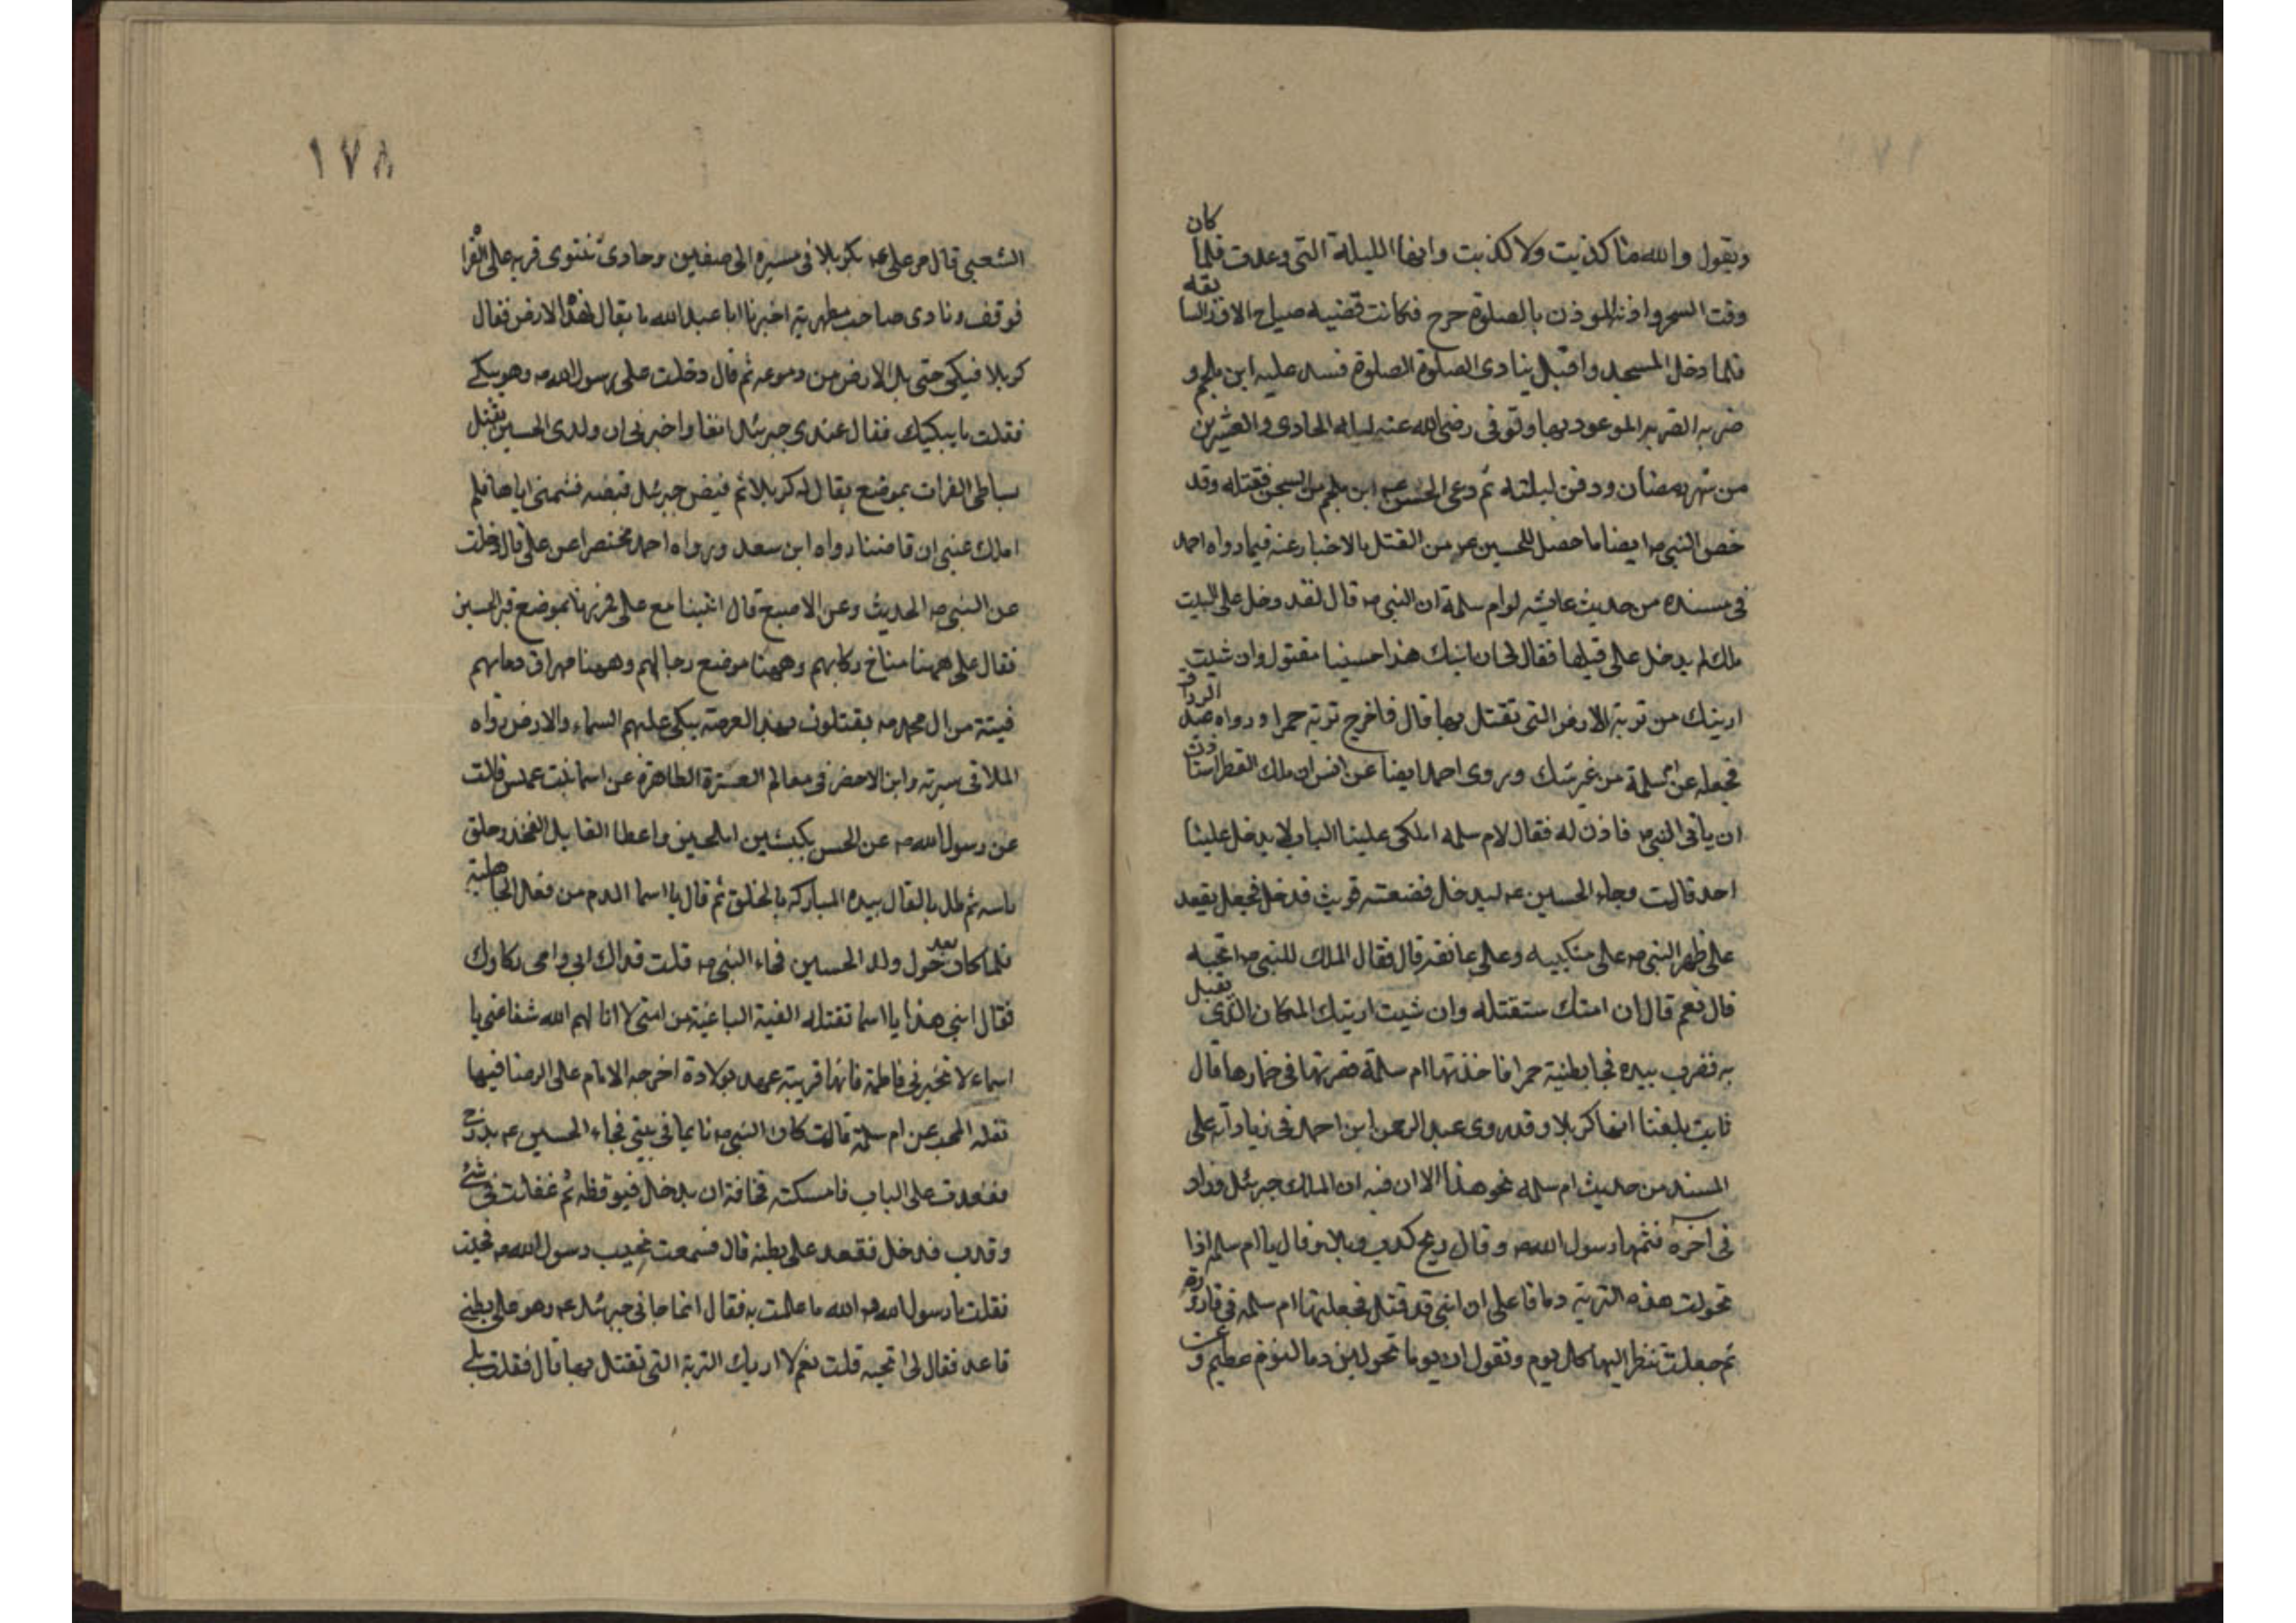 كان
ويقول والله ما كذبت ولا كذبت وانها الليلة التي وعدت فلما
بقه
وقت السحر واذن الموذن بالصلوة خرج فكانت قضيه صياح الاوز السا
فلما دخل المسجد واقبل ينادى الصلوة الصلوة فشد عليه ابن ملجم و
ضربه الضربه الموعود بها وتوفى رضى الله عنه ليله الحادى والعشرين
من شهر رمضان ودفن ليلته ثم دعى الحسن عه ابن ملجم من السجن فقتله وقد
خص النبي صه ايضا ما حصل للحسين عه من القتل بالاخبار عنه فيما رواه احمد
فى مسنده من حديث عايشه او ام سلمة ان النبي صه قال لقد دخل على البيت
ملك لم يدخل على قبلها فقال لى ان ابنك هذا حسينا مقتول وان شيت
اريتك من تربة الارض التى تقتل بها قال فاخرج تربة حمرا ورواه عبد
الرزاق
فجعله عن ام سلمة من غير شك وروى احمد ايضا عن انس ان ملك القطر استا
ذن
ان ياتى النبي صه فاذن له فقال لام سلمه املكى علينا الباب لا يدخل علينا
احد قالت وجاء الحسين عه ليدخل فمنعته فوثب فدخل فجعل يقعد
على ظهر النبي صه على منكبيه وعلى عاتقه قال فقال الملك للنبي صه اتحبه
قال نعم قال ان امتك ستقتله وان شيت اريتك المكان الذى
يقبل
به فضرب بيده فجا بطينة حمرا فاخذتها ام سلمة فصرتها فى خمارها قال
ثابت بلغنا انها كربلا وقد روى عبد الرحمن ابن احمد فى زياداته على
المسند من حديث ام سلمه نحو هذا الا ان فيه ان الملك جبرئل وزاد
فى آخره فشمها رسول الله صه وقال ريح كرب وبلاء وقال يا ام سلمه اذا
تحولت هذه التربة دما فاعلمى ان ابنى قد قتل فجعلتها ام سلمه فى قارورة
ثم جعلت تنظر اليها كل يوم وتقول ان يوما تحولين دما ليوم عظيم و
عن
١٧٨
الشعبي قال مر على عه بكربلا فى مسيره الى صفين وحاذى نينوى قريه على الفرا
فوقف ونادى صاحب مطهرته اخبرنا ابا عبد الله ما يقال لهذه الارض فقال
كربلا فبكى حتى بل الارض من دموعه ثم قال دخلت على رسول الله صه وهو يبكى
فقلت ما يبكيك فقال عندى جبرئل انفا واخبرنى ان ولدى الحسين يقتل
بشاطى الفرات بموضع يقال له كربلا ثم قبض جبرئل قبضه فشمنى اياها فلم
املك عينى ان فاضتا رواه ابن سعد ورواه احمد مختصرا عن على قال دخلت
عن النبي صه الحديث وعن الاصبغ قال اتينا مع على فمررنا بموضع قبر الحسين
فقال على ههنا مناخ ركابهم وههنا موضع رحالهم وههنا مهراق دمائهم
فيتة من ال محمد صه يقتلون بهذه العرصة يبكى عليهم السماء والارض رواه
الملا فى سيرته وابن الاخضر فى معالم العترة الطاهرة عن اسما بنت عميس قالت
عن رسول الله صه عن الحسن بكبشين املحين واعطا القابل الفخذ وحلق
راسه ثم طلا بالقال بيده المباركه بالخلوق ثم قال يا اسما الدم من فعل الجاهلية
فلما كان بعد حول ولد الحسين فجاء النبي صه قلت فداك ابى وامى بكاوك
فقال ابنى هذا يا اسما تقتله الفية الباغية من امتى لا انا لهم الله شفاعتى يا
اسماء لا تخبرى فاطمة فانها قريبة عهد بولادة اخرجه الامام على الرضا فيها
نقله المحب عن ام سلمة قالت كان النبي صه نايما فى بيتى فجاء الحسين عه يدرج
فقعدت على الباب فامسكته مخافة ان يدخل فيوقظه ثم غفلت فى شئ
وقدب فدخل فقعد على بطنه قال فسمعت نحيب رسول الله صه فجيت
فقلت يا رسول الله صه الله ما علمت به فقال انما جانى جبرئل عه وهو على بطنى
قاعد فقال لى اتحبه قلت نعم لا اريك التربة التى تقتل بها قال فقلت بلى